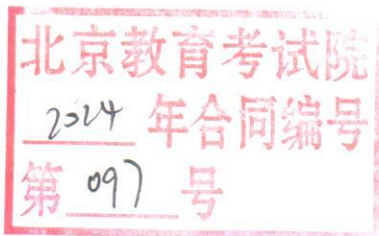 北京教育考试院
2024 年合同编号
第 097 号